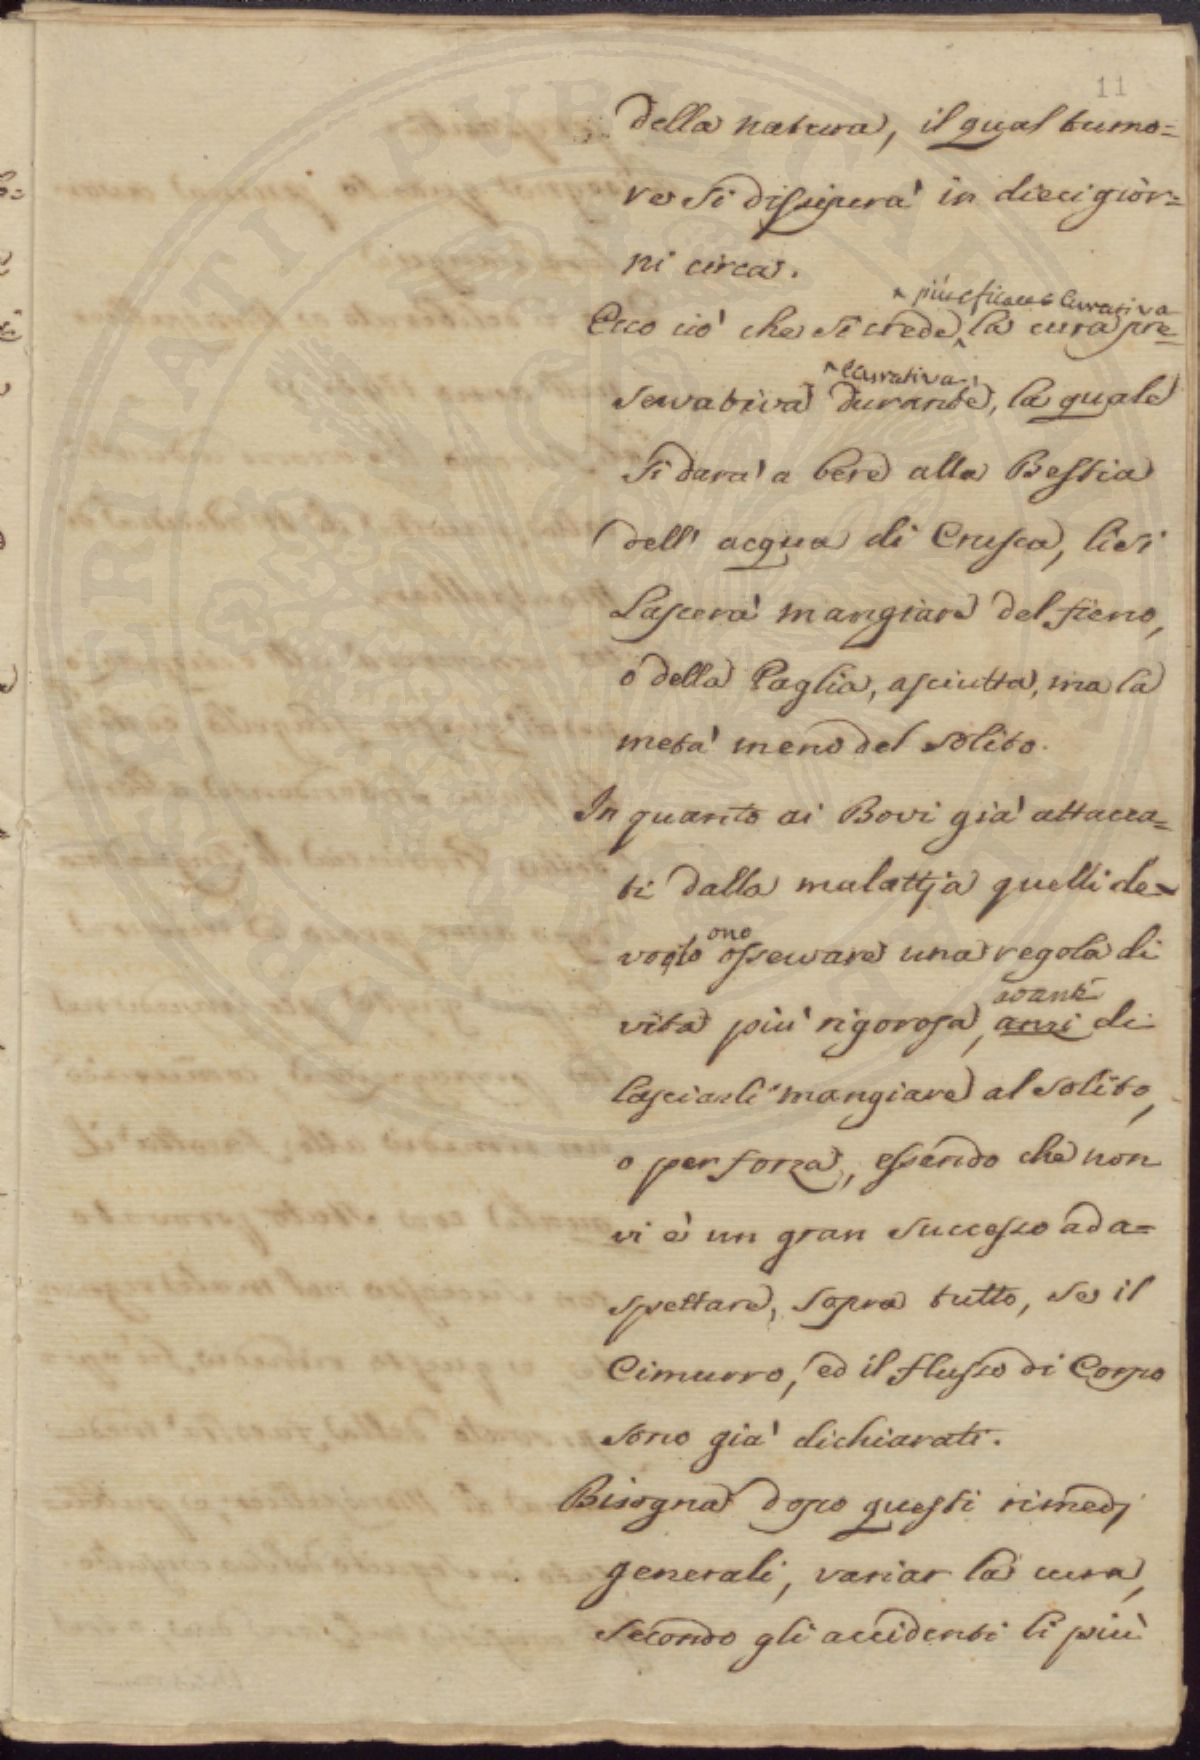 11
della natura, il qual tumo=
re si dissiperà in dieci gior=
ni circa.
^ più efficace Curativa
Ecco ciò che si crede ^ la cura pre=
^ Curativa
servativa durante, la quale
si darà a bere alla Bestia
dell' acqua di Crusca, li si
Lascerà mangiare del fieno,
o della Paglia, asciutta, ma la
metà meno del solito.
In quanto ai Bovi già attacca=
ti dalla malattja quelli de=
ono
osservare una regola di
avanti
vita più rigorosa, anzi di
lasciarli mangiare al solito,
o per forza, essendo che non
vi è un gran successo ad a=
spettare, sopra tutto, se il
Cimurro, ed il flusso di Corpo
sono già dichiarati.
Bisogna dopo questi rimedj
generali, variar la cura,
secondo gli accidenti li più